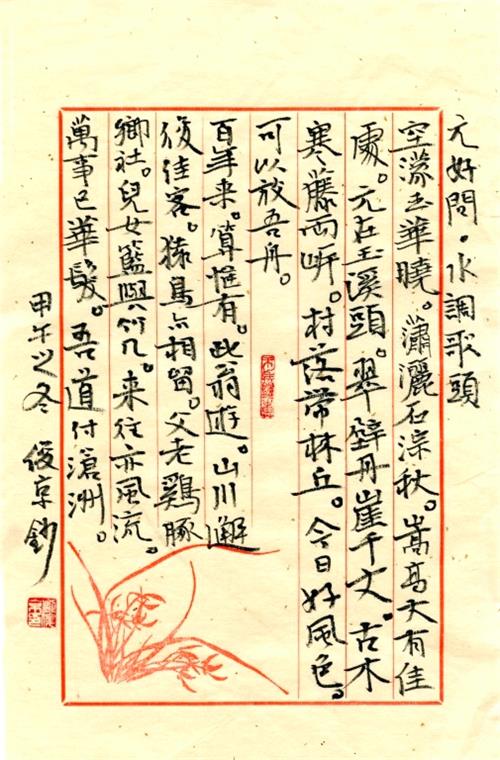 元好問·水調歌頭
空濛玉華曉。瀟灑石淙秋。嵩高大有佳
處。元在玉溪頭。翠壁丹崖千丈。古木
寒藤兩岍。村落帶林丘。今日好風色。
可以放吾舟。
百年来。算惟有。此翁遊。山川邂
後佳客。猿鳥亦相留。父老鷄豚
鄉社。兒女籃輿竹几。来往亦風流。
萬事已華髮。吾道付滄洲。
甲午之冬 俊京鈔